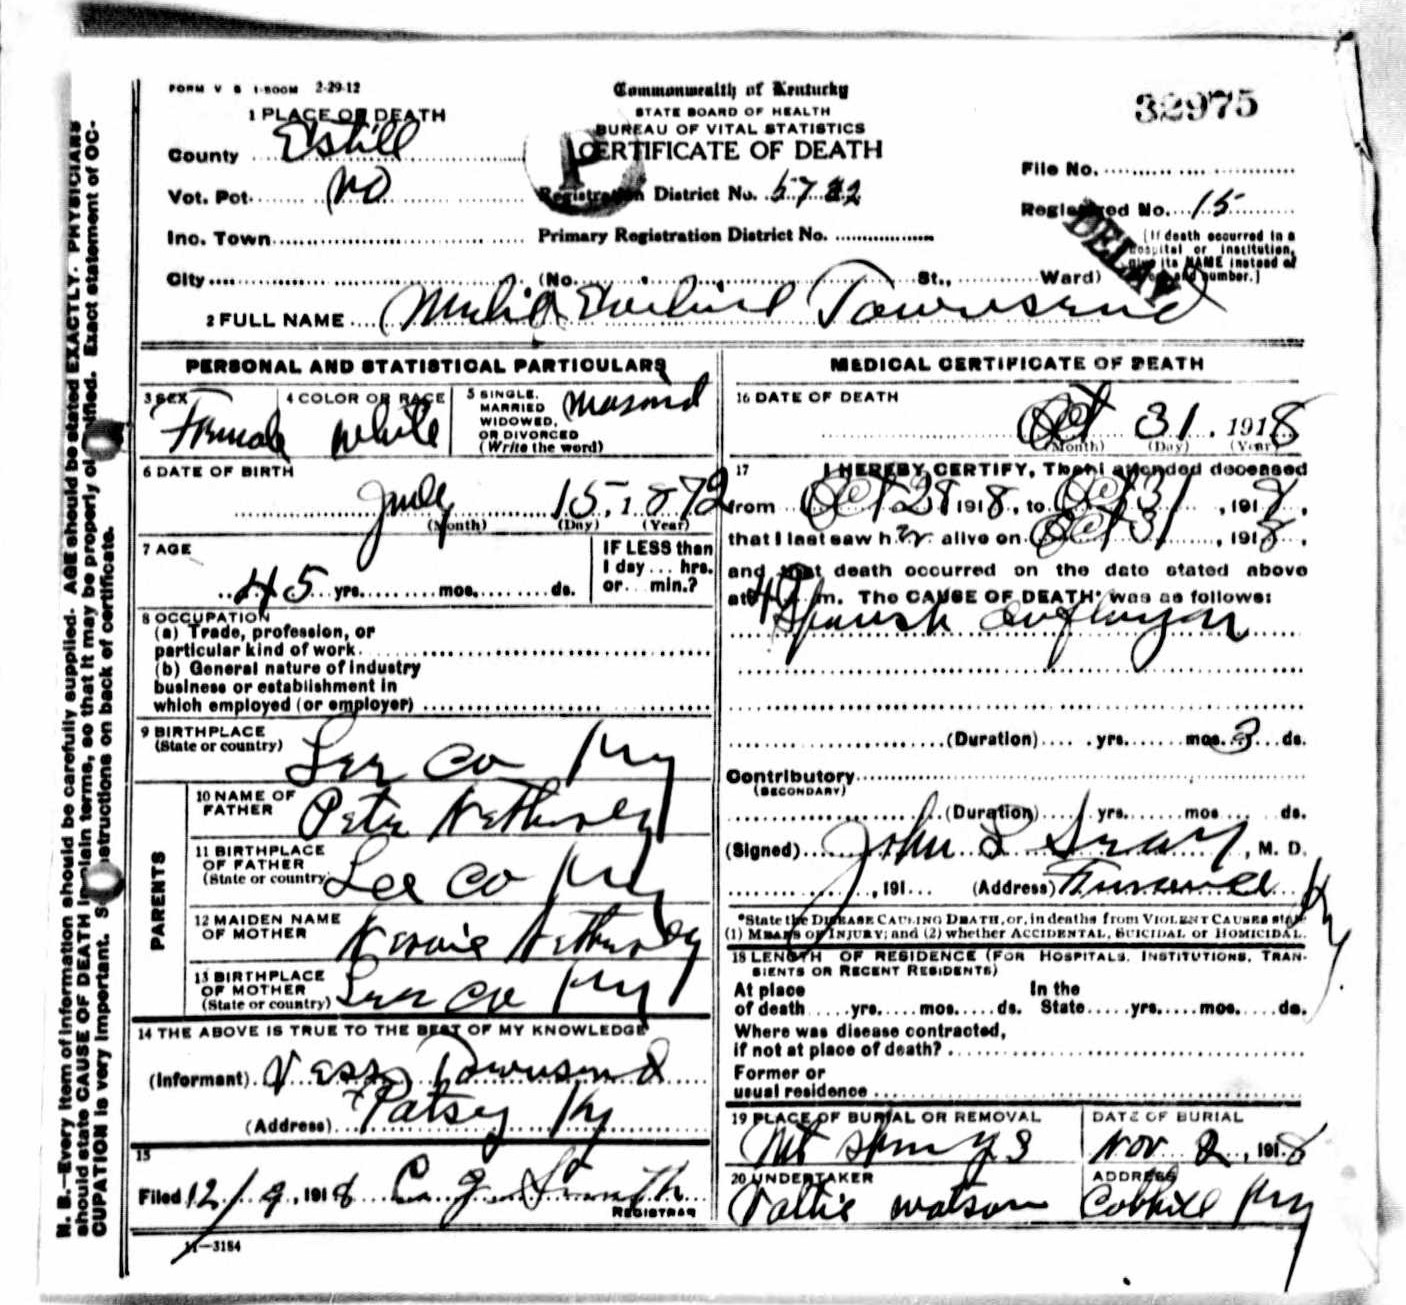 FORM V S 1-500M 2-29-12
Commonwealth of Kentucky
STATE BOARD OF HEALTH
BUREAU OF VITAL STATISTICS
CERTIFICATE OF DEATH
32975
1 PLACE OF DEATH
County Estill
Vot. Pct. No
Inc. Town
City (No. St., Ward)
Registration District No. 5722
Primary Registration District No.
File No.
Registered No. 15
DELAY
P
[If death occurred in a
hospital or institution,
give its NAME instead of
street and number.]
2 FULL NAME Townsend
PERSONAL AND STATISTICAL PARTICULARS
3 SEX Female
4 COLOR OR RACE White
5 SINGLE, MARRIED WIDOWED, OR DIVORCED (Write the word)
6 DATE OF BIRTH
July 15, 1872
(Month) (Day) (Year)
7 AGE
45 yrs. mos. ds.
IF LESS than
1 day ... hrs.
or ... min.?
8 OCCUPATION
(a) Trade, profession, or
particular kind of work
(b) General nature of industry
business or establishment in
which employed (or employer)
9 BIRTHPLACE
(State or country) Lee Co Ky
PARENTS
10 NAME OF
FATHER Pete
11 BIRTHPLACE
OF FATHER
(State or country) Lee Co Ky
12 MAIDEN NAME
OF MOTHER
13 BIRTHPLACE
OF MOTHER
(State or country) Lee Co Ky
14 THE ABOVE IS TRUE TO THE BEST OF MY KNOWLEDGE
(Informant) Townsend
(Address) Patsey Ky
15
Filed 12/9, 1918 C. J. Smith
REGISTRAR
11-3184
MEDICAL CERTIFICATE OF DEATH
16 DATE OF DEATH
Oct 31, 1918
(Month) (Day) (Year)
17 I HEREBY CERTIFY, That I attended deceased
from Oct 28 1918, to Oct 31, 1918,
that I last saw her alive on Oct 31, 1918,
and that death occurred on the date stated above
at m. The CAUSE OF DEATH* was as follows:
Spanish
(Duration) yrs. mos. 3 ds.
Contributory
(SECONDARY)
(Duration) yrs. mos. ds.
(Signed) John, M. D.
, 191 (Address) Ky
*State the DISEASE CAUSING DEATH, or, in deaths from VIOLENT CAUSES state
(1) MEANS OF INJURY; and (2) whether ACCIDENTAL, SUICIDAL or HOMICIDAL.
18 LENGTH OF RESIDENCE (FOR HOSPITALS, INSTITUTIONS, TRAN-
SIENTS OR RECENT RESIDENTS)
At place In the
of death yrs. mos. ds. State yrs. mos. ds.
Where was disease contracted,
if not at place of death?
Former or
usual residence
19 PLACE OF BURIAL OR REMOVAL
DATE OF BURIAL
Nov. 2, 1918
20 UNDERTAKER
Watson
ADDRESS
Cobhill Ky
N. B.—Every item of information should be carefully supplied. AGE should be stated EXACTLY. PHYSICIANS
should state CAUSE OF DEATH in plain terms, so that it may be properly classified. Exact statement of OC-
CUPATION is very important. See instructions on back of certificate.